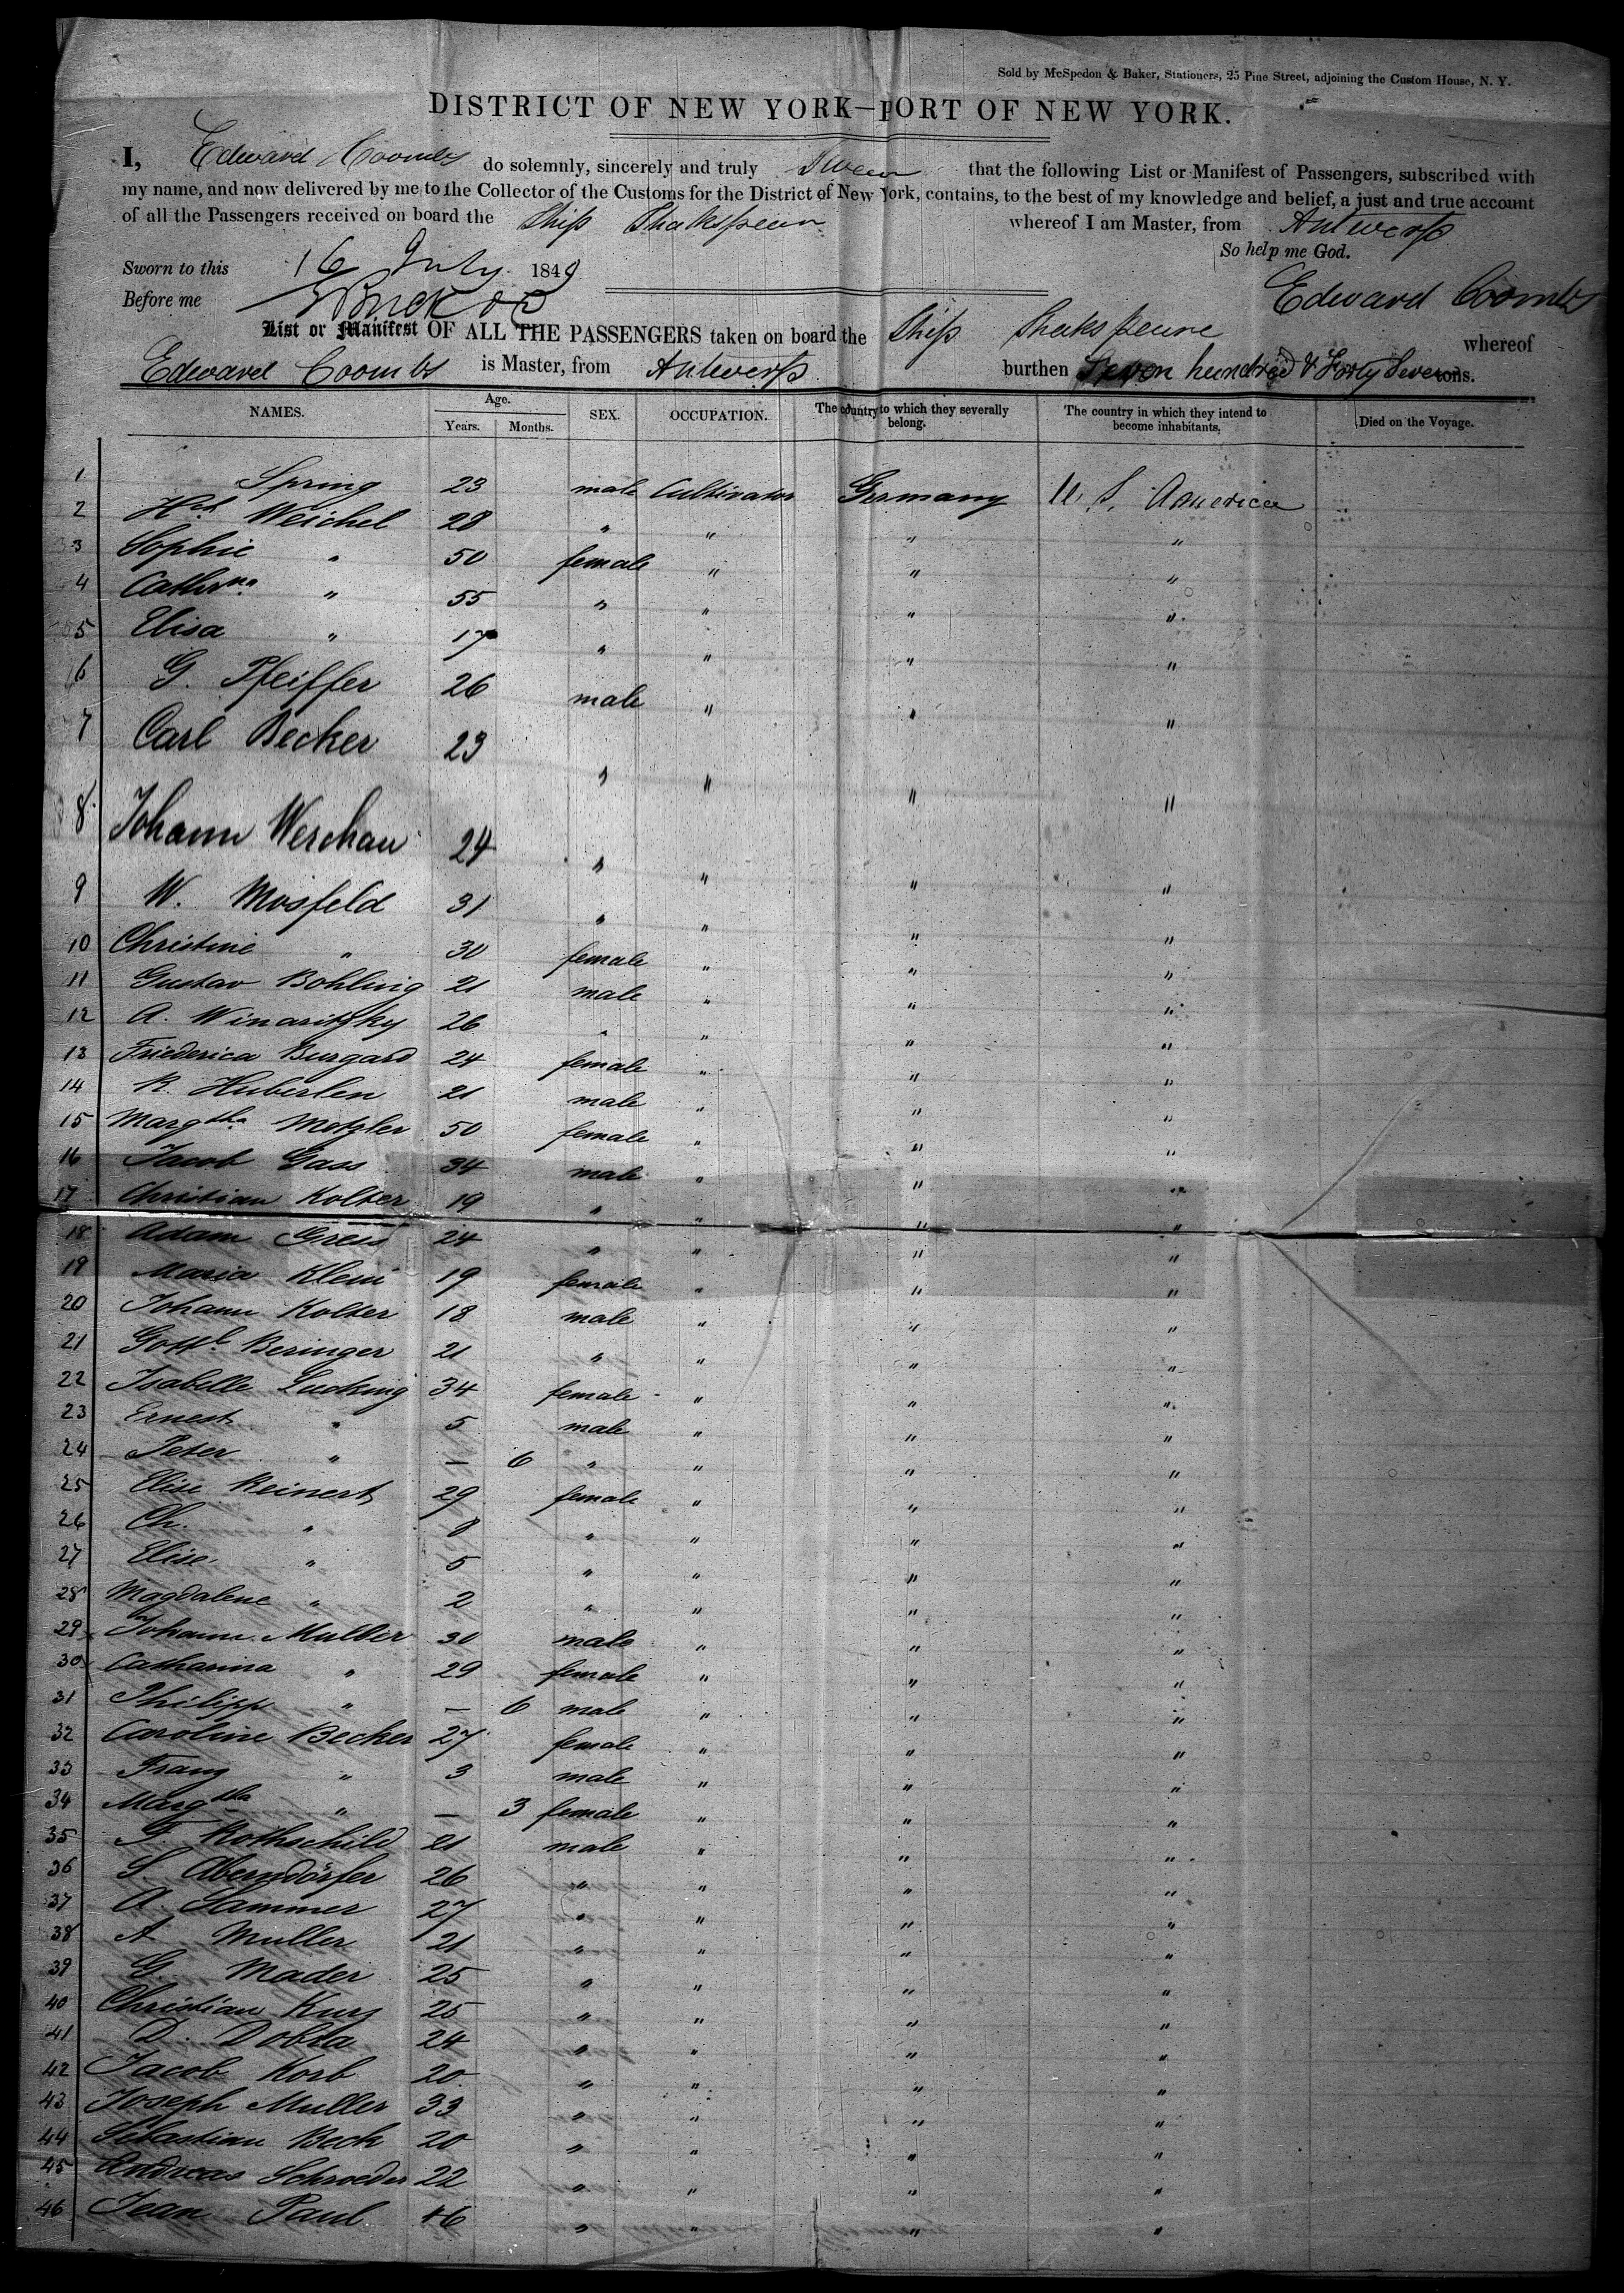 Sold by McSpedon & Baker, Stationers, 25 Pine Street, adjoining the Custom House, N. Y.
DISTRICT OF NEW YORK—PORT OF NEW YORK.
I, Edward Coombs do solemnly, sincerely and truly Swear that the following List or Manifest of Passengers, subscribed with
my name, and now delivered by me to the Collector of the Customs for the District of New York, contains, to the best of my knowledge and belief, a just and true account
of all the Passengers received on board the Ship Shakspeare whereof I am Master, from Antwerp
So help me God.
Sworn to this 16 July 1849
Edward Coombs
Before me
List or Manifest OF ALL THE PASSENGERS taken on board the Ship Shakspeare whereof
Edward Coombs is Master, from Antwerp burthen Seven hundred & Forty Seven tons.
NAMES. Age. Years. Months. SEX. OCCUPATION. The country to which they severally belong. The country in which they intend to become inhabitants. Died on the Voyage.
1 Spring 23 male Cultivator Germany U. S. America
2 Hch Weichel 28 " " " "
3 Sophie " 50 female " " "
4 Cathrna " 55 " " " "
5 Elisa " 17 " " " "
6 G. Pfeiffer 26 male " " "
7 Carl Becker 23 " " " "
8 Johann Werchau 24 " " " "
9 W. Mosfeld 31 " " " "
10 Christine " 30 female " " "
11 Gustav Bohling 21 male " " "
12 A. Winaritzky 26 " " " "
13 Friederica Burgard 24 female " " "
14 R. Huberlen 21 male " " "
15 Margtha Metzler 50 female " " "
16 Jacob Gass 34 male " " "
17 Christian Kolter 19 " " " "
18 Adam Greis 24 " " " "
19 Maria Klein 19 female " " "
20 Johann Kolter 18 male " " "
21 Gottl. Beringer 21 " " " "
22 Isabelle Lucking 34 female " " "
23 Ernest " 5 male " " "
24 Peter " — 6 " " " "
25 Elise Reinert 29 female " " "
26 Ch. " 8 " " " "
27 Elise " 5 " " " "
28 Magdalene " 2 " " " "
29 Johann Muller 30 male " " "
30 Catharina " 29 female " " "
31 Philipp " — 6 male " " "
32 Caroline Becker 27 female " " "
33 Franz " 3 male " " "
34 Margtha " — 3 female " " "
35 F. Rothschild 21 male " " "
36 S. Oberndörfer 26 " " " "
37 A. Sammer 27 " " " "
38 A Muller 21 " " " "
39 G. Mader 25 " " " "
40 Christian Kurz 25 " " " "
41 D. 24 " " " "
42 Jacob Korb 20 " " " "
43 Joseph Muller 33 " " " "
44 Sebastian Beck 20 " " " "
45 Andreas Schroeder 22 " " " "
46 Jean Paul 46 " " " "